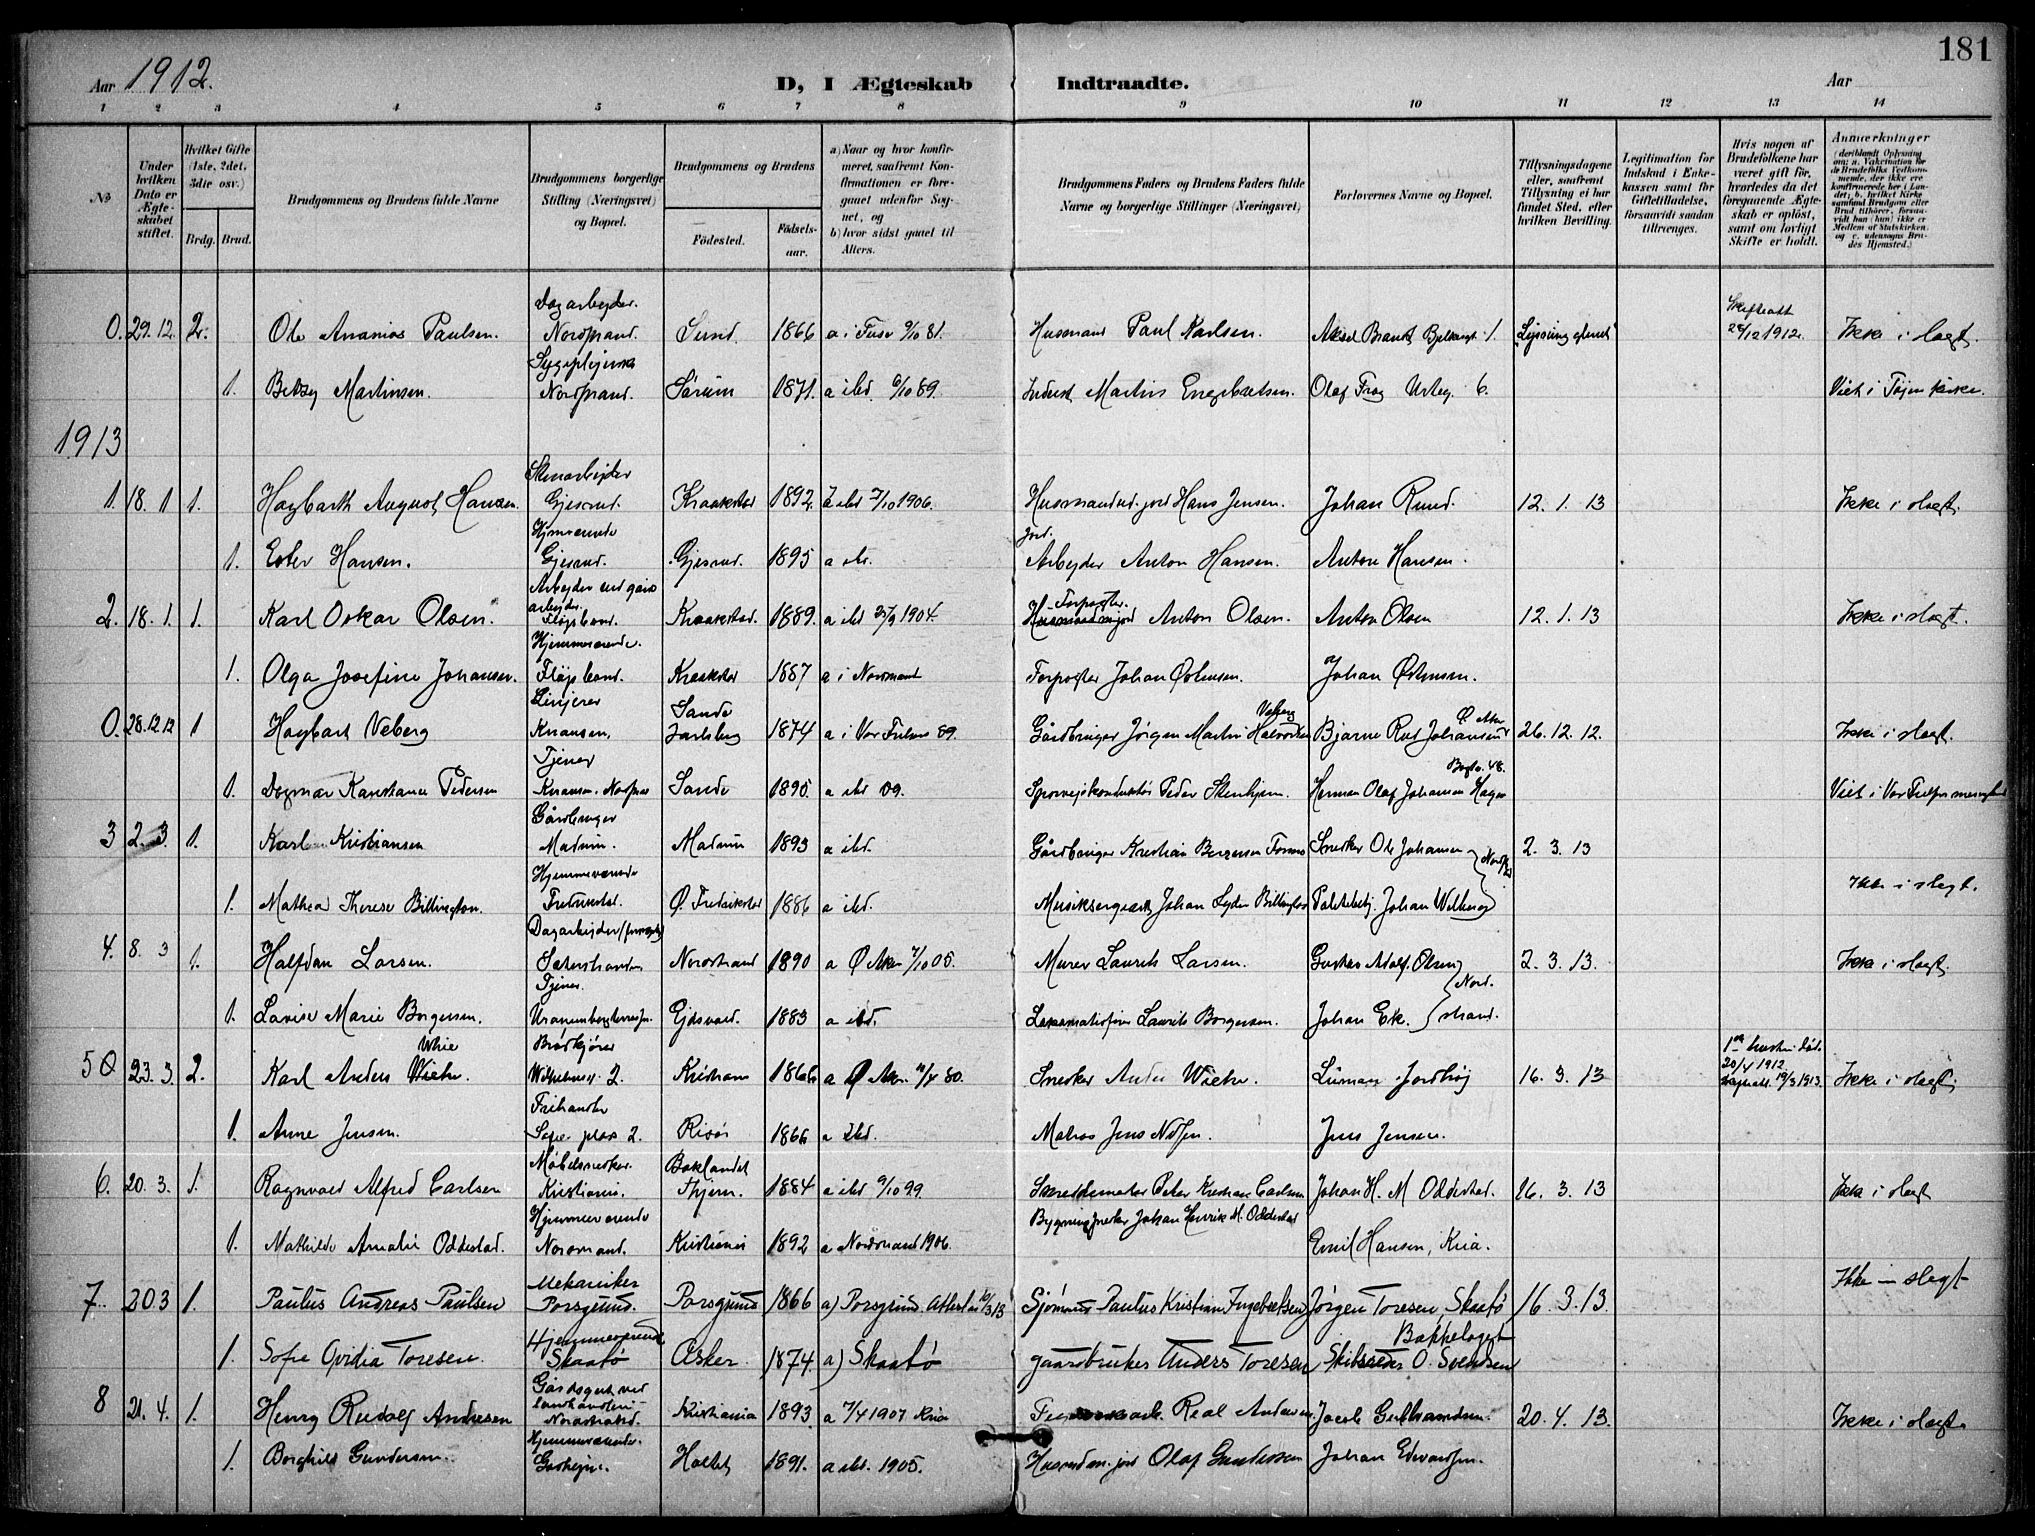 181
Aar 1912.
D, I Ægteskab Indtraadte.
Aar
1 2 3 4 5 6 7 8 9 10 11 12 13 14
No
Under hvilken Dato er Ægteskabet stiftet.
Hvilket Gifte (1ste, 2det, 3die osv.)
Brdg. Brud.
Brudgommens og Brudens fulde Navne
Brudgommens borgerlige Stilling (Næringsvei) og Bopæl.
Brudgommens og Brudens
Fødested. Fødselsaar.
a) Naar og hvor konfirmeret, saafremt Konfirmationen er foregaaet udenfor Sognet, og
b) hvor sidst gaaet til Alters.
Brudgommens Faders og Brudens Faders fulde Navne og borgerlige Stillinger (Næringsvei)
Forlovernes Navne og Bopæl.
Tillysningsdagene eller, saafremt Tillysning ei har fundet Sted, efter hvilken Bevilling.
Legitimation for Indskud i Enkekassen samt for Giftetilladelse, forsaavidt saadan tiltrænges.
Hvis nogen af Brudefolkene har været gift før, hvorledes da det foregaaende Ægteskab er opløst, samt om lovligt Skifte er holdt.
Anmærkninger
(deriblandt Oplysning om: a. Vakcination for de Brudefolks Vedkommende, der ikke ere konfirmerede her i Landet; b. hvilket Kirkesamfund Brudgom eller Brud tilhører, forsaavidt han (hun) ikke er Medlem af Statskirken, og c. udensogns Brudes Hjemsted.)
0. 29.12. 2. Ole Ananias Paulsen. Dagarbeyder Nordstrand. Sund 1866 a i Fuse 9/10 81. Husmand Paul Karlsen. Aksel Brandt Skifteatt 28/12 1912. Ikke i slægt.
1. Betsy Martinsen. Sygepleierske Nordstrand. Sørum 1871. a ibd 6/10 89. Inderst Martin Engebretsen. Olaf 6. Viet i Tøien kirke.
1913
1. 18. 1 1. Hagbarth August Hansen. Stenarbejder Gjersrud. Kraakstad 1892. ibd 7/10 1906. Husmand ud. jord Hans Jensen. Johan Ruud. 12. 1. 13 Ikke i slægt.
1. Ester Hansen. Hjemværende Gjersrud. Gjersrud. 1895 a ibd. Arbejder Anton Hansen. Anton Hansen.
2. 18. 1. 1. Karl Oskar Olsen. Arbejder Kraakstad. 1889. a ibd 1904. Forpagter Anton Olsen. Anton Olsen 12. 1. 13 Ikke i slægt.
1. Olga Josefine Johansen. Hjemmeværende. Kraakstad 1887 a i Nordstrand Forpagter Johan Østensen. Johan Østensen.
0. 28.12.12 1 Hagbart Veberg Knausen. Sande Jarlsberg 1874 a i Vor Frelsers 89. Gårdbruger Jørgen Martin Halvorsen Veberg Bjarne Rud Johansen Ø. Aker 26. 12. 12. Ikke i slægt.
1. Dagmar Konstance Pedersen Tjener Knausen. Nordstrand Sande 1890. a ibd 09. Sporveiskonduktør Peder Herman Olaf Johansen Hagen Viet i Vor Frelsers menighed
3 2. 3. 1. Karl Kristiansen Gårdbruger Madum. Madum 1893 a ibd. Gårdbruger Kristian Snedker Ole Johansen 2. 3. 13
1. Mathea Therese Billington. Hjemmeværende Fredrikstad. Ø. Fredrikstad 1886 a ibd. Johan Billington Johan Wilberg Ikke i slægt.
4. 8. 3 1. Halfdan Larsen. Dagarbejder Nordstrand 1890 a Ø Aker 7/10 05. Murer Laurits Larsen. Gustav Adolf. Olsen 2. 3. 13. Ikke i slægt.
1. Lovise Marie Borgersen. Tjener. Gjdsvold. 1883 a ibd. Lokomotivfører Laurits Borgersen. Johan Ek. Nord. strand.
5 0 23. 3. 2. Karl Anders Wiehe. Brødkjører 2. Kristiania 1866 a Ø Aker. 80. Snedker Anders Wiehe. 16. 3. 13 1ste hustru død 20/4 1912. 19/3 1913. Ikke i slægt.
1. Anne Jensen. Frihandler Sofie plass 2. Risør 1866 a ibd. Matros Jens Nilsen. Jens Jensen.
6. 20. 3. 1. Ragnvald Alfred Carlsen Møbelsnedker. Kristiania. Baklandet Thjem. 1884 a ibd 9/10 99. Peter Kristian Carlsen Johan H. M Oddestad. 16. 3. 13 Ikke i slægt
1. Mathilde Amalie Oddestad. Hjemmeværende Nordstrand. Kristiania 1892 a Nordstrand 1906. Bygningssnedker Johan Henrik M. Oddestad Emil Hansen, Kria.
7.. 20 3 1. Paulus Andreas Paulsen Mekaniker Porsgrund. Porsgrund 1866 a) Porsgrund. Attest 10/3 13 Sjømand Paulus Kristian Ingebretsen Jørgen Toresen, Skaatø 16. 3. 13. Ikke i slegt
1. Sofie Ovidia Toresen. Hjemmeværende Skaatø Asker. 1874 a) Skaatø gaardbruker Anders Toresen Bækkelaget Skibsreder O. Svendsen
8 21. 4. 1. Henry Rudolf Andresen Gårdsgut ved landhandleri Nordstrand. Kristiania 1893 a 7/4 1907 Kria Real Andersen Jacob Gulbrandsen. 20. 4. 13. Ikke i slægt
1. Borghild Gundersen. Hjemmeværende. 1891. a ibd. 1905. Husmd m. jord Olaf Gundersen Johan Edvardsen.